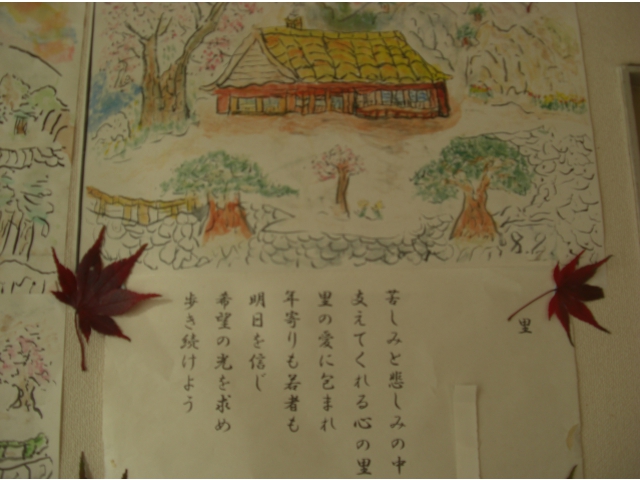 里
苦しみと悲しみの中
支えてくれる心の里
里の愛に包まれ
年寄りも若者も
明日を信じ
希望の光を求め
歩き続けよう